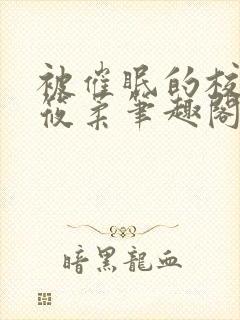 被催眠的校
筱柔笔趣阁
暗黑龍血